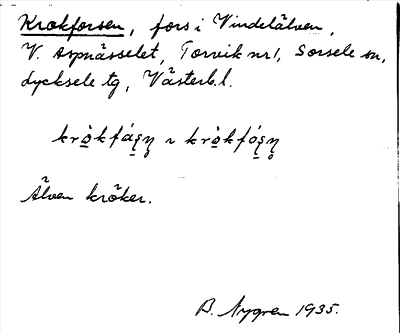 Krokforsen, fors i Vindelälven,
V. Aspnässelet, Torvik nr 1, Sorsele sn,
Lycksele tg, Västerb. l.
Älven kröker.
B. Nygren 1935.